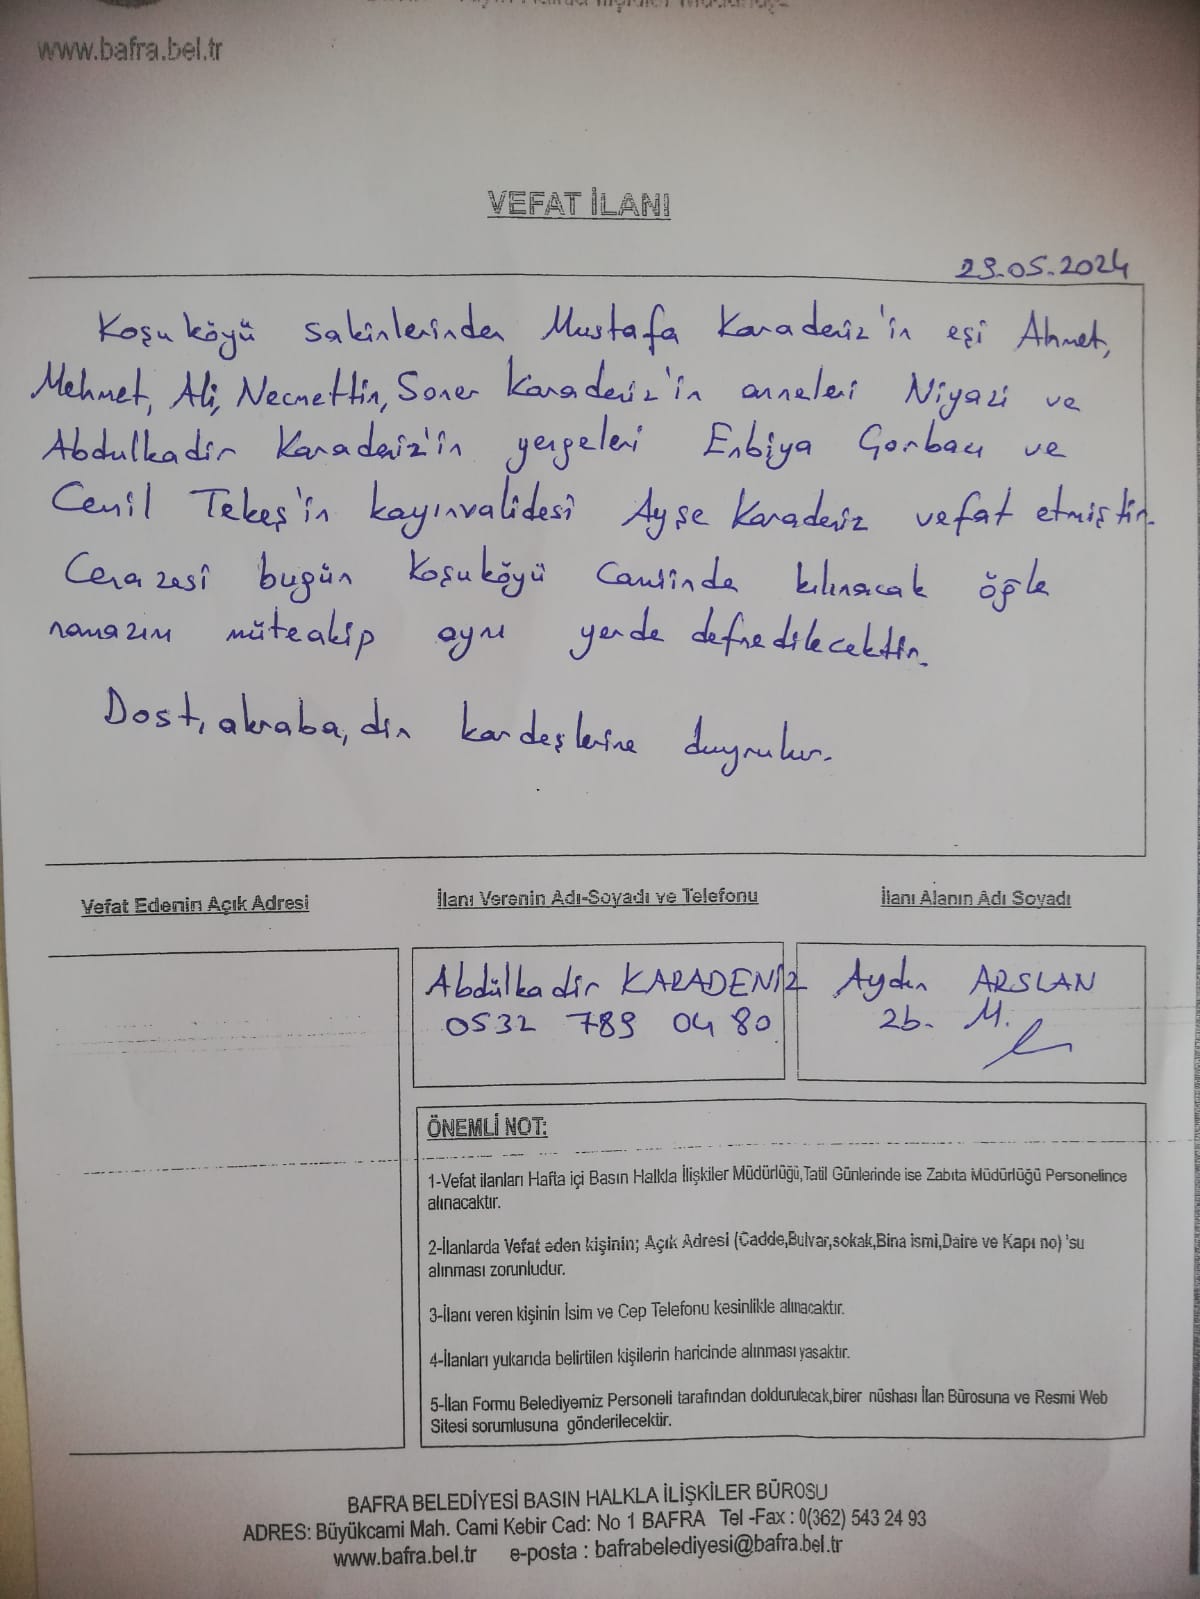 www.bafra.bel.tr
VEFAT İLANI
29.05.2024
Koşuköyü sakinlerinden Mustafa Karadeniz'in eşi Ahmet,
Mehmet, Ali, Necmettin, Soner Karadeniz'in anneleri Niyazi ve
Abdulkadir Karadeniz'in yengeleri Enbiya Gorbacı ve
Cemil Tekeş'in kayınvalidesi Ayşe Karadeniz vefat etmiştir.
Cenazesi bugün Koşuköyü Camiinde kılınacak öğle
namazını müteakip aynı yerde defnedilecektir.
Dost, akraba, din kardeşlerine duyrulur.
Vefat Edenin Açık Adresi
İlanı Verenin Adı-Soyadı ve Telefonu
İlanı Alanın Adı Soyadı
Abdülkadir KARADENİZ
0532 789 04 80
Aydın ARSLAN
Zb. M.
ÖNEMLİ NOT:
1-Vefat ilanları Hafta içi Basın Halkla İlişkiler Müdürlüğü,Tatil Günlerinde ise Zabıta Müdürlüğü Personelince
alınacaktır.
2-İlanlarda Vefat eden kişinin; Açık Adresi (Cadde,Bulvar,sokak,Bina ismi,Daire ve Kapı no) 'su
alınması zorunludur.
3-İlanı veren kişinin İsim ve Cep Telefonu kesinlikle alınacaktır.
4-İlanları yukarıda belirtilen kişilerin haricinde alınması yasaktır.
5-İlan Formu Belediyemiz Personeli tarafından doldurulacak,birer nüshası İlan Bürosuna ve Resmi Web
Sitesi sorumlusuna gönderilecektir.
BAFRA BELEDİYESİ BASIN HALKLA İLİŞKİLER BÜROSU
ADRES: Büyükcami Mah. Cami Kebir Cad: No 1 BAFRA Tel -Fax : 0(362) 543 24 93
www.bafra.bel.tr e-posta : bafrabelediyesi@bafra.bel.tr